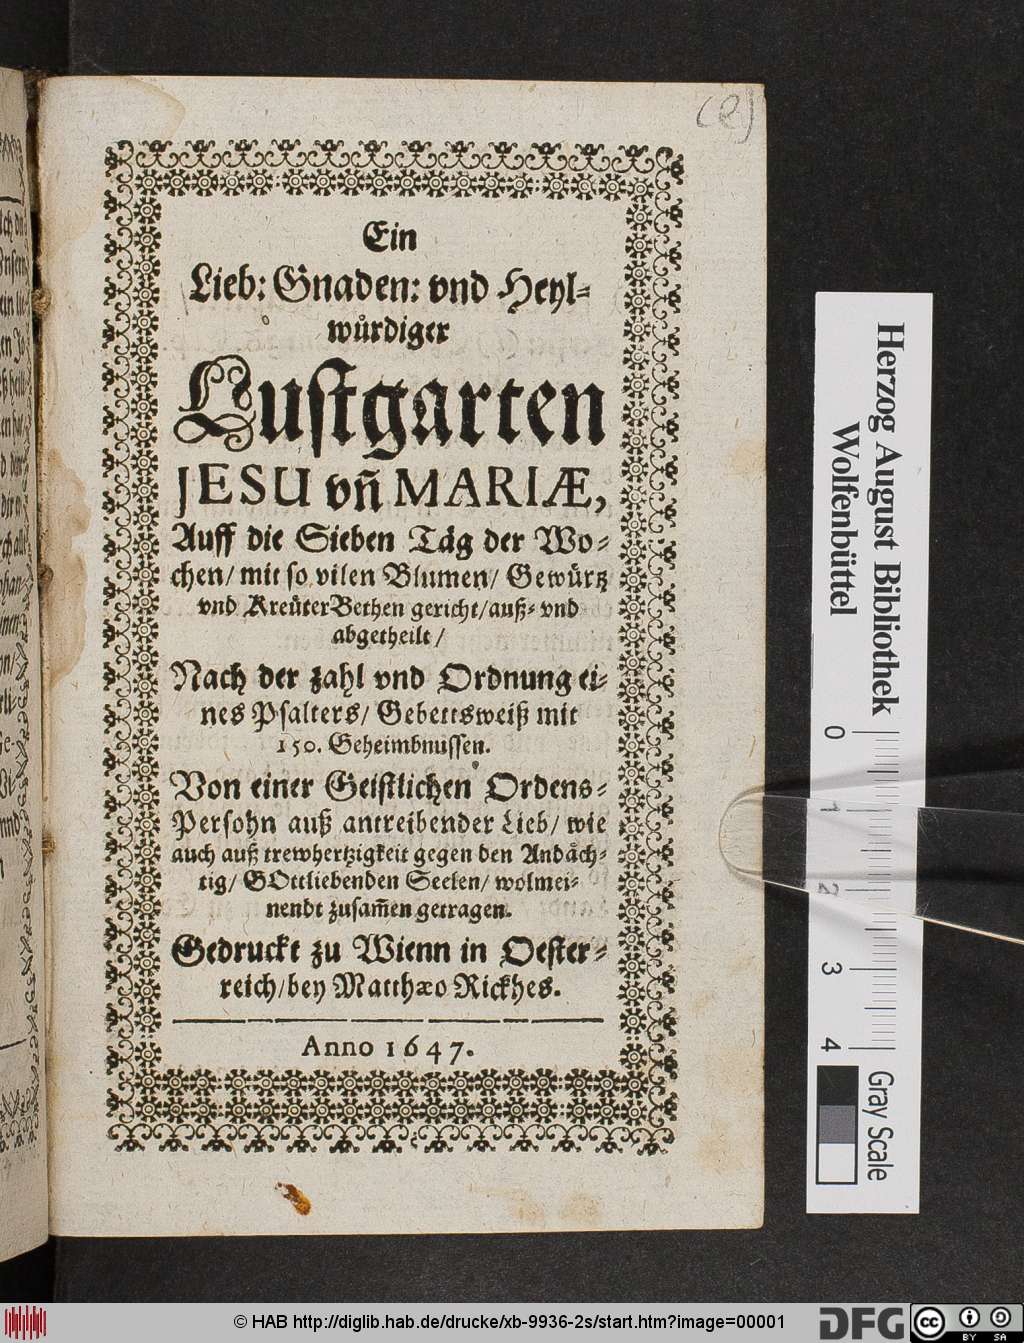 (e)
Ein
Lieb: Gnaden: vnd Heyl-
wůrdiger
Lustgarten
JESU vñ MARIÆ,
Auff die Sieben Täg der Wo-
chen/ mit so vilen Blumen/ Gewürtz
vnd KreüterBethen gericht/auß- vnd
abgetheilt/
Nach der zahl vnd Ordnung ei-
nes Psalters/ Gebettsweiß mit
150. Geheimbnussen.
Von einer Geistlichen Ordens-
Persohn auß antreibender Lieb/ wie
auch auß trewhertzigkeit gegen den Andåch-
tig/ GOttliebenden Seelen/ wolmei-
nendt zusam̃en getragen.
Gedruckt zu Wienn in Oester-
reich/bey Matthæo Rickhes.
Anno 1647.
Herzog August Bibliothek
Wolfenbüttel
0
1
2
3
4
Gray Scale
© HAB http://diglib.hab.de/drucke/xb-9936-2s/start.htm?image=00001
DFG
cc
BY SA